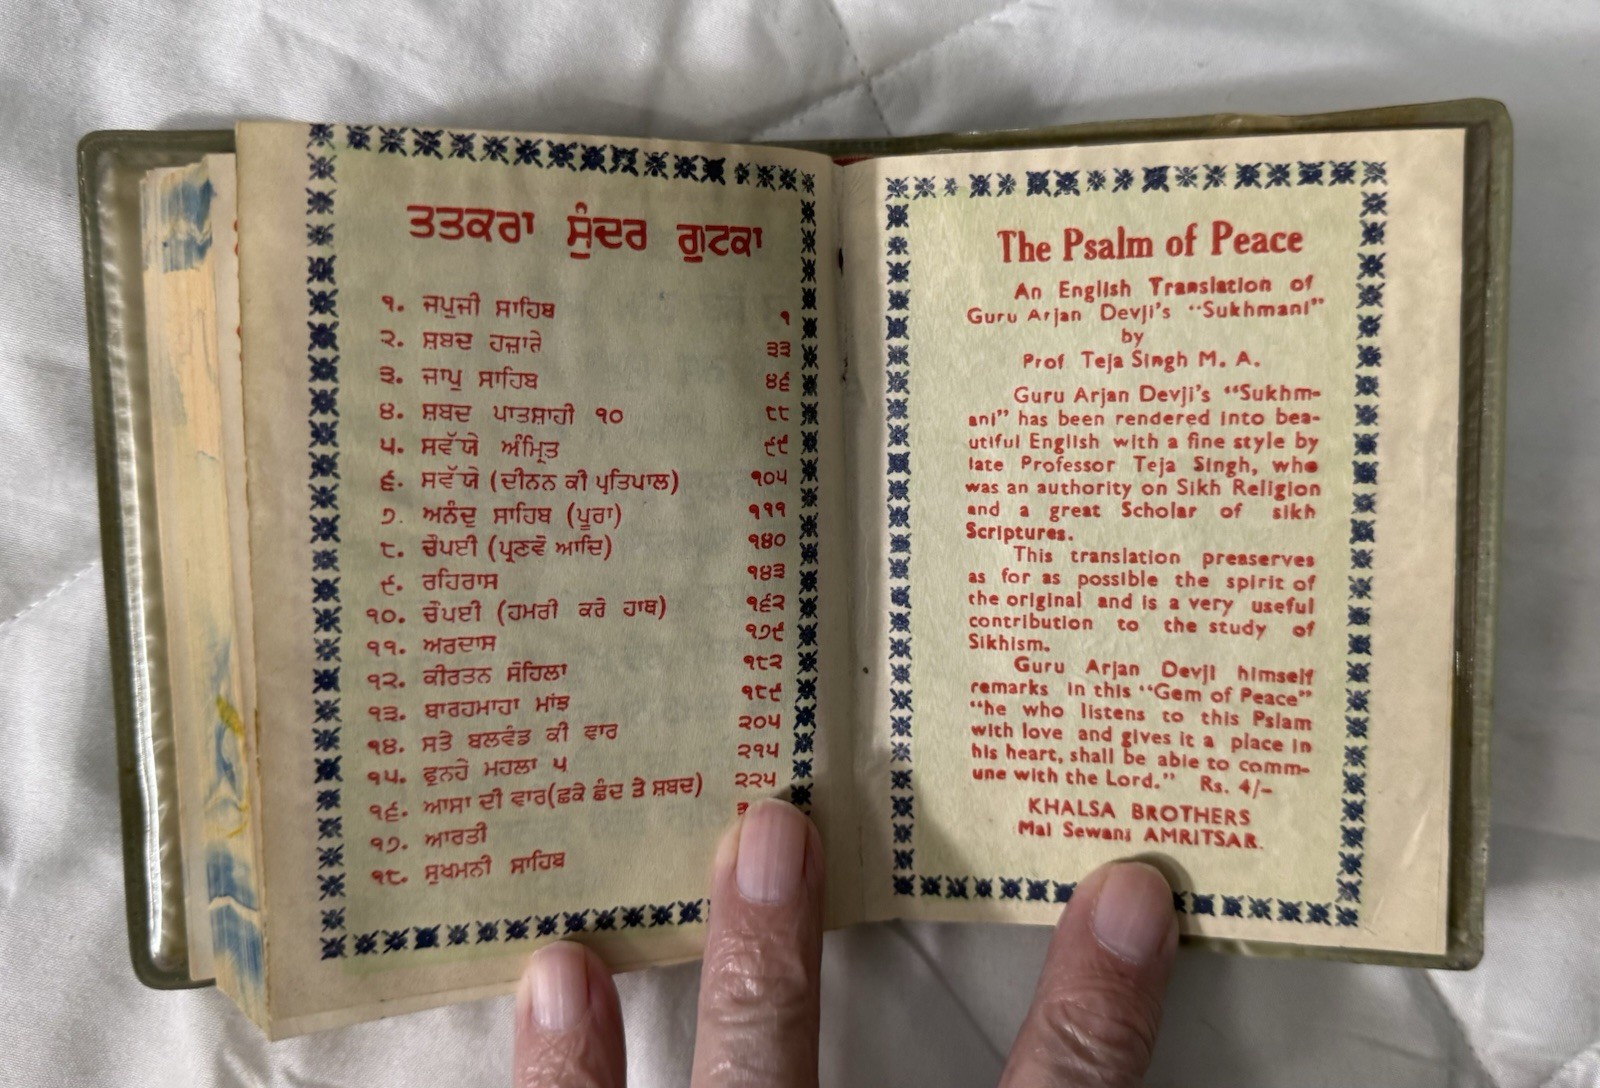 ਤਤਕਰਾ ਸੁੰਦਰ ਗੁਟਕਾ
੧. ਜਪੁਜੀ ਸਾਹਿਬ ੧
੨. ਸ਼ਬਦ ਹਜ਼ਾਰੇ ੩੩
੩. ਜਾਪੁ ਸਾਹਿਬ ੪੬
੪. ਸ਼ਬਦ ਪਾਤਸ਼ਾਹੀ ੧੦ ੮੮
੫. ਸਵੱਯੇ ਅੰਮ੍ਰਿਤ ੯੯
੬. ਸਵੱਯੇ (ਦੀਨਨ ਕੀ ਪ੍ਰਤਿਪਾਲ) ੧੦੫
੭. ਅਨੰਦੁ ਸਾਹਿਬ (ਪੂਰਾ) ੧੧੧
੮. ਚੌਪਈ (ਪ੍ਰਣਵੋ ਆਦਿ) ੧੪੦
੯. ਰਹਿਰਾਸ ੧੪੩
੧੦. ਚੌਪਈ (ਹਮਰੀ ਕਰੋ ਹਾਥ) ੧੬੨
੧੧. ਅਰਦਾਸ ੧੭੯
੧੨. ਕੀਰਤਨ ਸੋਹਿਲਾ ੧੮੨
੧੩. ਬਾਰਹਮਾਹਾ ਮਾਂਝ ੧੮੯
੧੪. ਸਤੇ ਬਲਵੰਡ ਕੀ ਵਾਰ ੨੦੫
੧੫. ਫੁਨਹੇ ਮਹਲਾ ੫ ੨੧੫
੧੬. ਆਸਾ ਦੀ ਵਾਰ(ਛਕੇ ਛੰਦ ਤੇ ਸ਼ਬਦ) ੨੨੫
੧੭. ਆਰਤੀ
੧੮. ਸੁਖਮਨੀ ਸਾਹਿਬ
The Psalm of Peace
An English Translation of
Guru Arjan Devji's "Sukhmani"
by
Prof Teja Singh M. A.
Guru Arjan Devji's "Sukhm-
ani" has been rendered into bea-
utiful English with a fine style by
late Professor Teja Singh, who
was an authority on Sikh Religion
and a great Scholar of sikh
Scriptures.
This translation preaserves
as for as possible the spirit of
the original and is a very useful
contribution to the study of
Sikhism.
Guru Arjan Devji himself
remarks in this "Gem of Peace"
"he who listens to this Pslam
with love and gives it a place in
his heart, shall be able to comm-
une with the Lord." Rs. 4/-
KHALSA BROTHERS
Mai Sewani AMRITSAR.